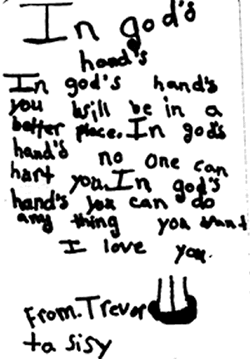 In god's
hand's
In god's hand's
you will be in a
better place. In god's
hand's no one can
hart you. In god's
hand's you can do
any thing you want
I love you.
From. Trevor
ta sisy